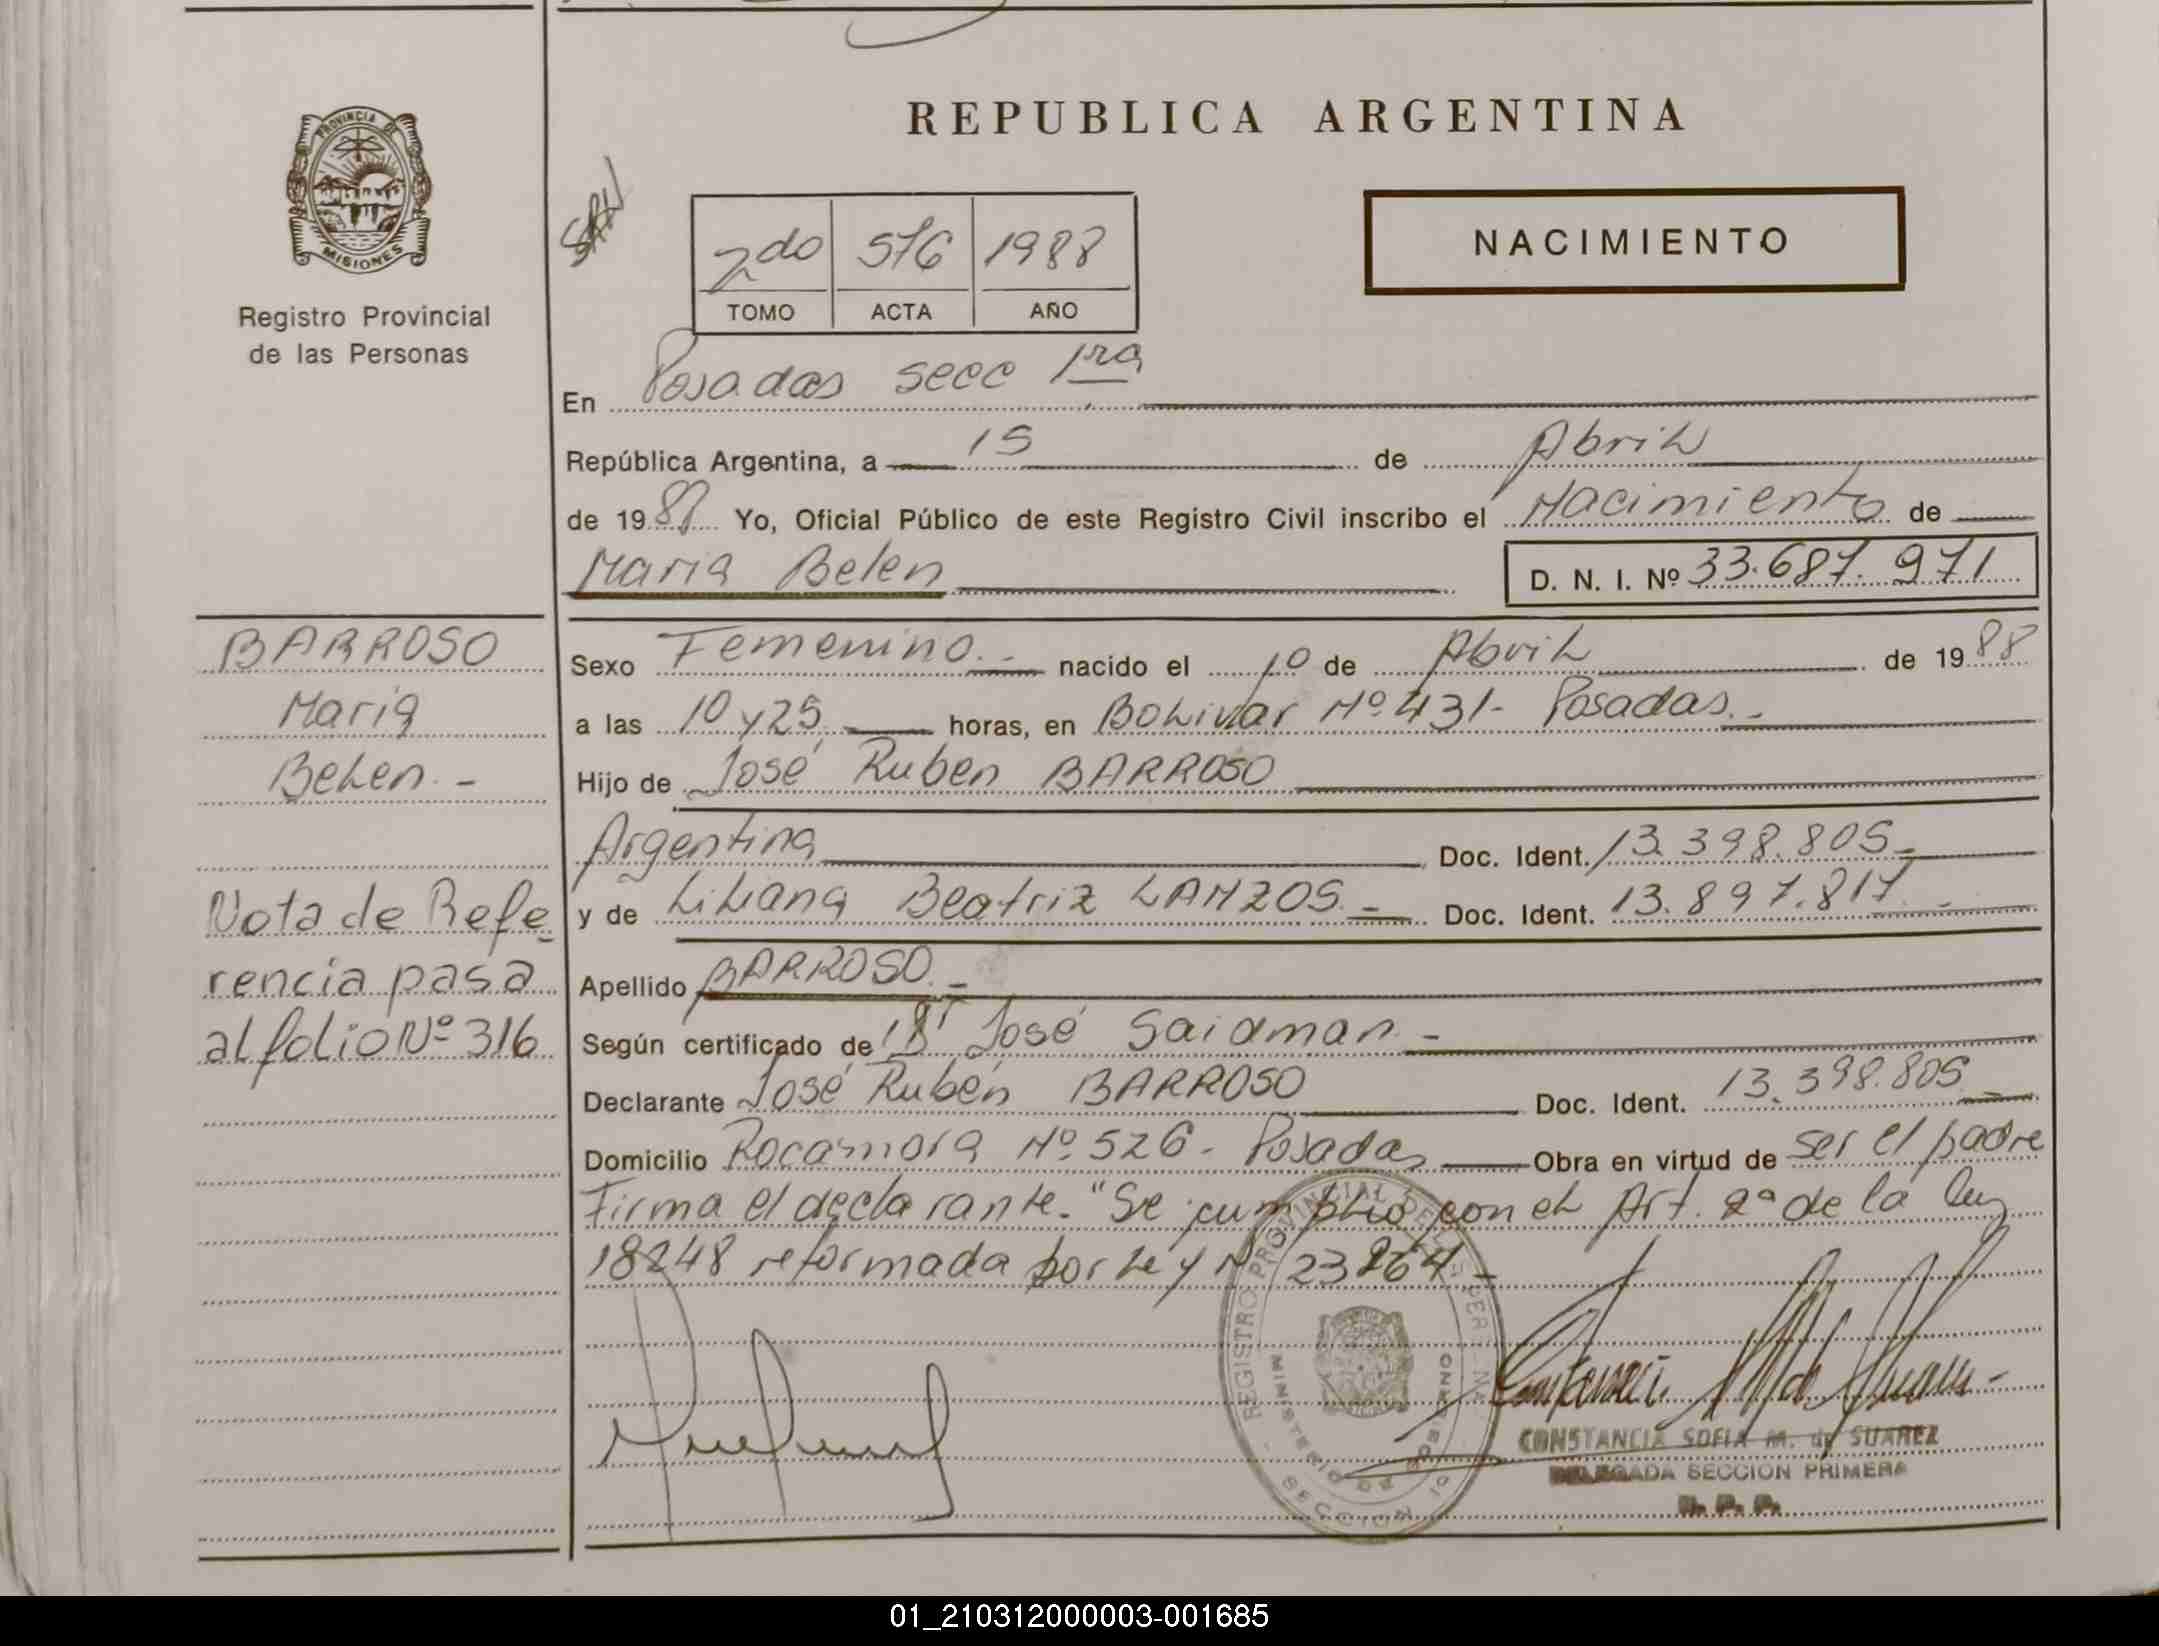 REPUBLICA ARGENTINA
PROVINCIA DE
MISIONES
Registro Provincial
de las Personas
NACIMIENTO
2do 576 1988
TOMO ACTA AÑO
En Posadas secc 1ra
República Argentina, a 15 de Abril
de 1988 Yo, Oficial Público de este Registro Civil inscribo el Nacimiento de
Maria Belen
D. N. I. Nº 33.687.971
BARROSO
Maria
Belen.-
Sexo Femenino.- nacido el 1º de Abril de 1988
a las 10 y 25 horas, en Bolivar Nº 431- Posadas.-
Hijo de José Ruben BARROSO
Argentina Doc. Ident. 13.398.805-
y de Liliana Beatriz LANZOS.- Doc. Ident. 13.897.817.-
Nota de Refe
rencia pasa
al folio Nº 316
Apellido BARROSO.-
Según certificado de José Saidman-
Declarante José Rubén BARROSO Doc. Ident. 13.398.805
Domicilio Rocamora Nº 526- Posadas Obra en virtud de ser el padre
Firma el declarante. "Se cumplió con el Art. 2ª de la ley
18248 reformada por Ley Nº 23264-
REGISTRO PROVINCIAL DE LAS PERSONAS
MINISTERIO DE GOBIERNO
SECCION 1º
CONSTANCIA SOFIA M. de SUAREZ
DELEGADA SECCION PRIMERA
R. P. P.
01_210312000003-001685